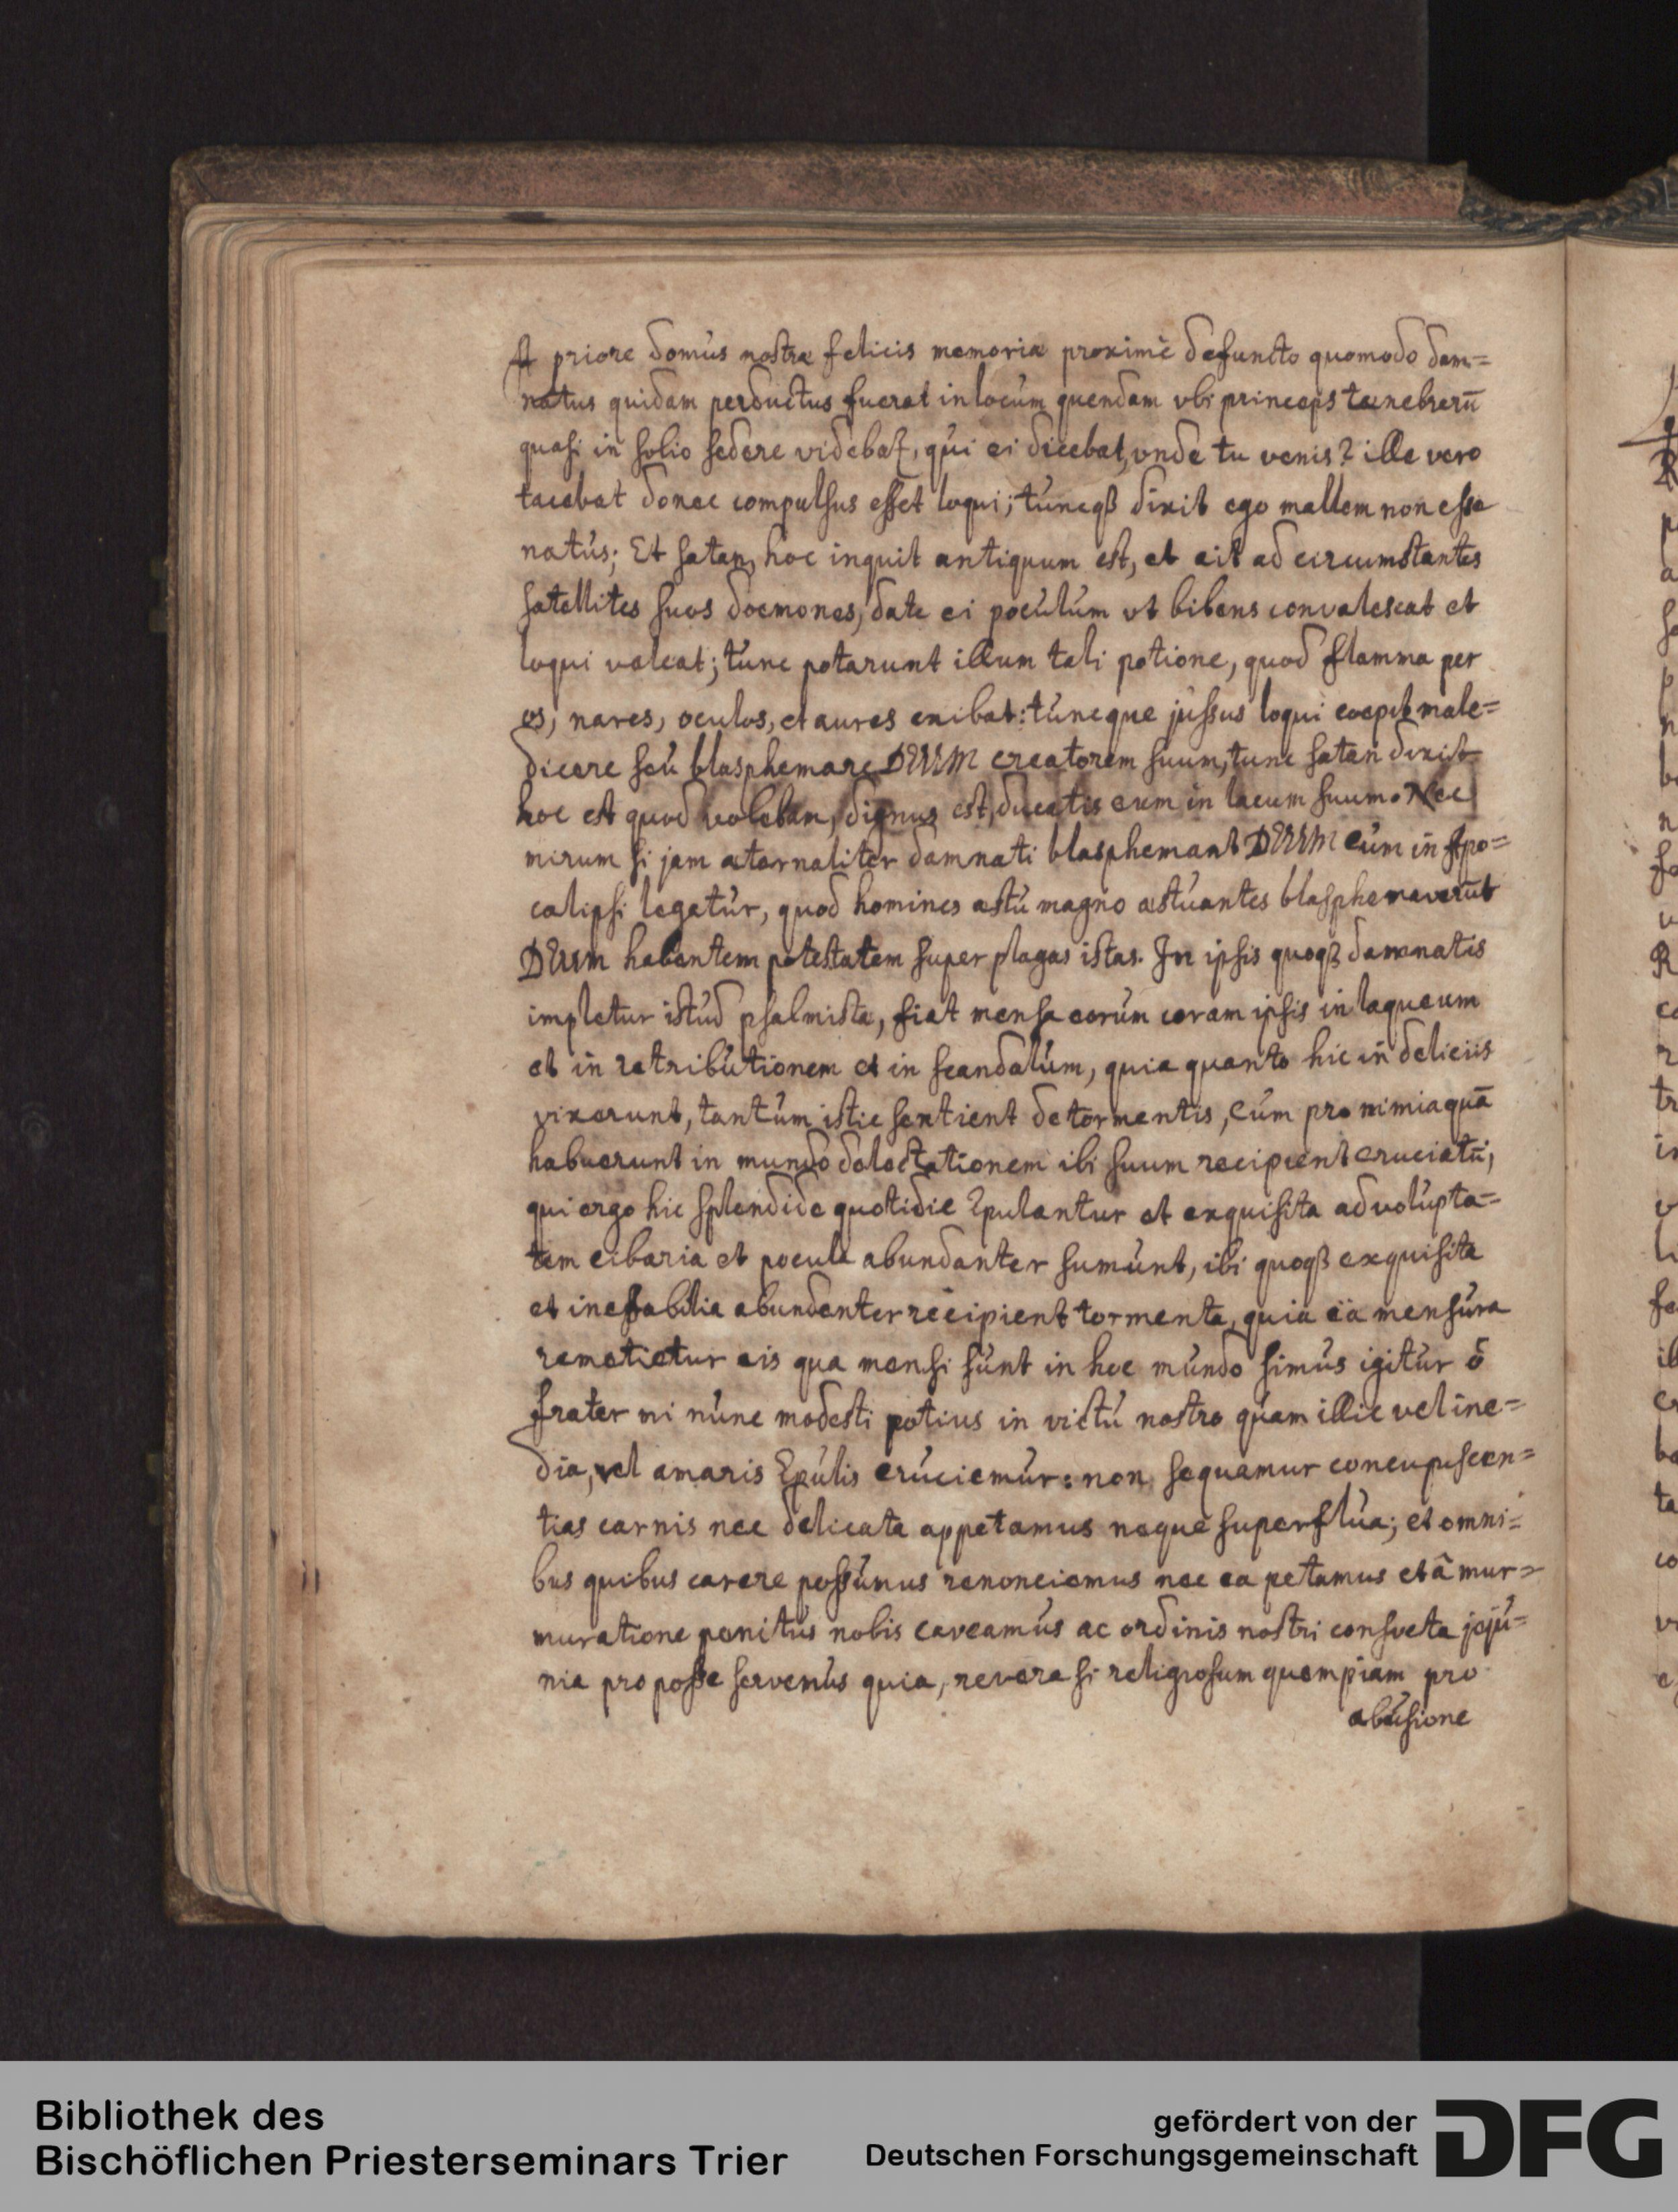 A priore domus nostræ felicis memoriæ proximè defuncto quomodo dam=
natus quidam perductus fuerat in locum quendam vbi princeps tænebrarū
quasi in solio sedere videbať, qui ei dicebat, vnde tu venis? ille vero
tacebat donec compulsus esset loqui; tuncqȝ dixit ego mallem non esse
natus; Et satan, hoc inquit antiquum est, et ait ad circumstantes
satellites suos dœmones, date ei poculum vt bibens convalescat et
loqui valeat; tunc potarunt illum tali potione, quod flamma per
os, nares, oculos, et aures exibat: tuncque jussus loqui cœpit male=
dicere seu blasphemare DEUM creatorem suum, tunc satan dixit
hoc est quod volebam, dignus est, ducatis eum in lacum suum. Nec
mirum si jam æternaliter damnati blasphemant DEUM cum in Apo=
calipsi legatur, quod homines æstu magno æstuantes blasphemaverūt
DEUM habentem potestatem super plagas istas. In ipsis quoqȝ damnatis
impletur istud psalmistæ, fiat mensa eorum coram ipsis in laqueum
et in retributionem et in scandalum, quia quanto hic in deliciis
vixerunt, tantum istic sentient de tormentis, cum pro nimia quā
habuerunt in mundo delectationem ibi suum recipient cruciatū;
qui ergo hic splendide quotidie Epulantur et exquisita ad volupta=
tem cibaria et pocula abundanter sumunt, ibi quoqȝ exquisita
et ineffabilia abundenter recipient tormenta, quia eä mensura
remetietur eis qua mensi sunt in hoc mundo simus igitur ô
frater mi nunc modesti potius in victu nostro quam illic vel ine=
dia, vel amaris Epulis cruciemur: non sequamur concupiscen=
tias carnis nec delicata appetamus neque superflua; et omni=
bus quibus carere possumus renonciemus nec ea petamus et â mur=
muratione penitus nobis caveamus ac ordinis nostri consveta jeju=
nia pro posse servemus quia, revera si religiosum quempiam pro
abusione
Bibliothek des
Bischöflichen Priesterseminars Trier
gefördert von der
Deutschen Forschungsgemeinschaft
DFG